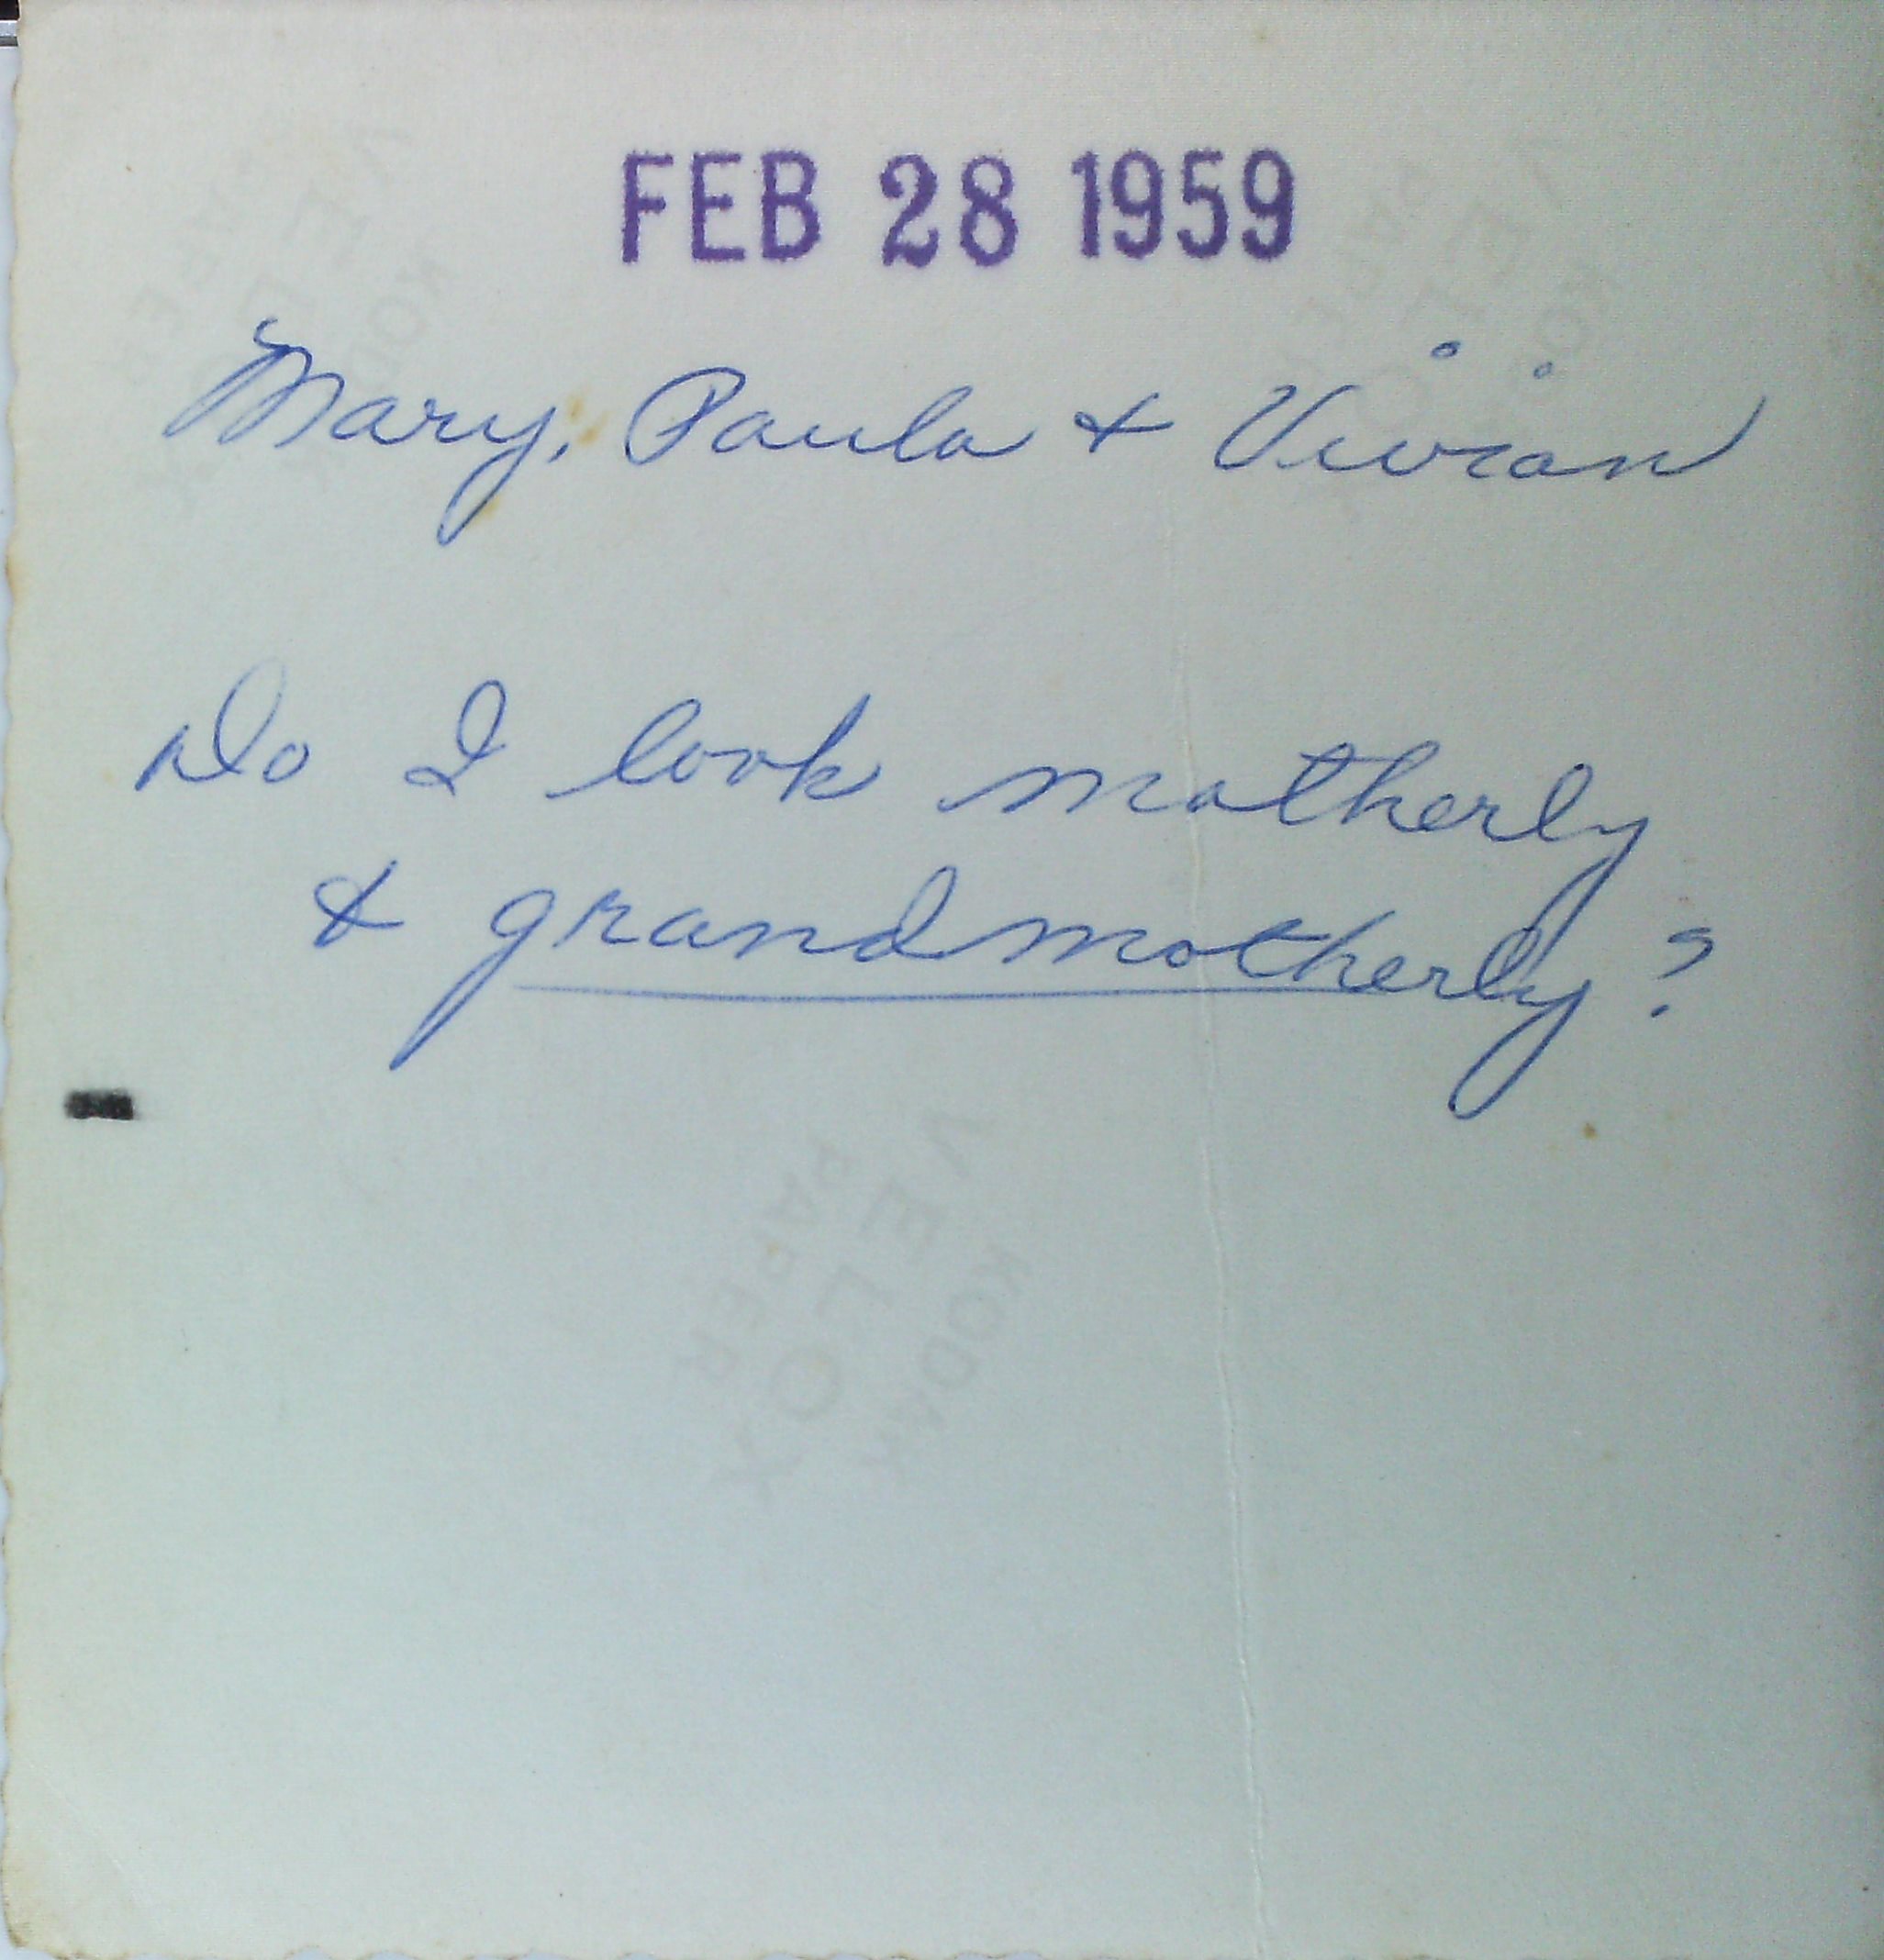 FEB 28 1959
Mary, Paula & Vivian
Do I look motherly
& grandmotherly?
VELOX
KODAK
PAPER